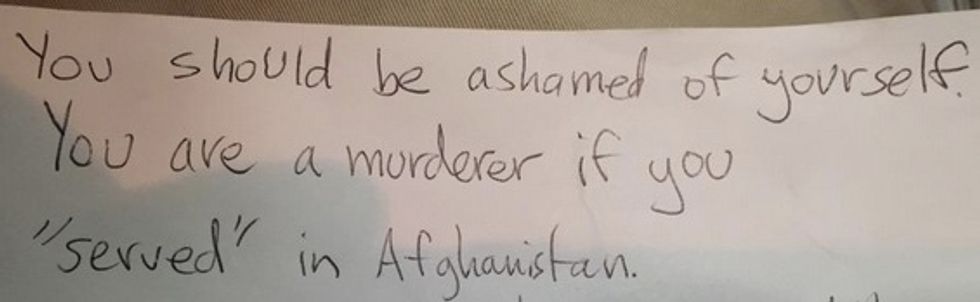 You should be ashamed of yourself.
You are a murderer if you
"served" in Afghanistan.